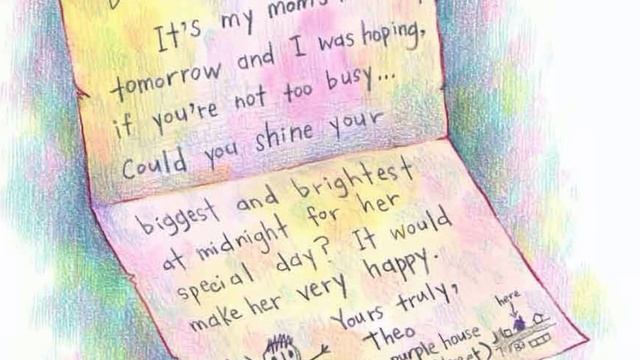 It's my mom's
tomorrow and I was hoping,
if you're not too busy...
Could you shine your
biggest and brightest
at midnight for her
special day? It would
make her very happy.
Yours truly,
Theo
here
purple house